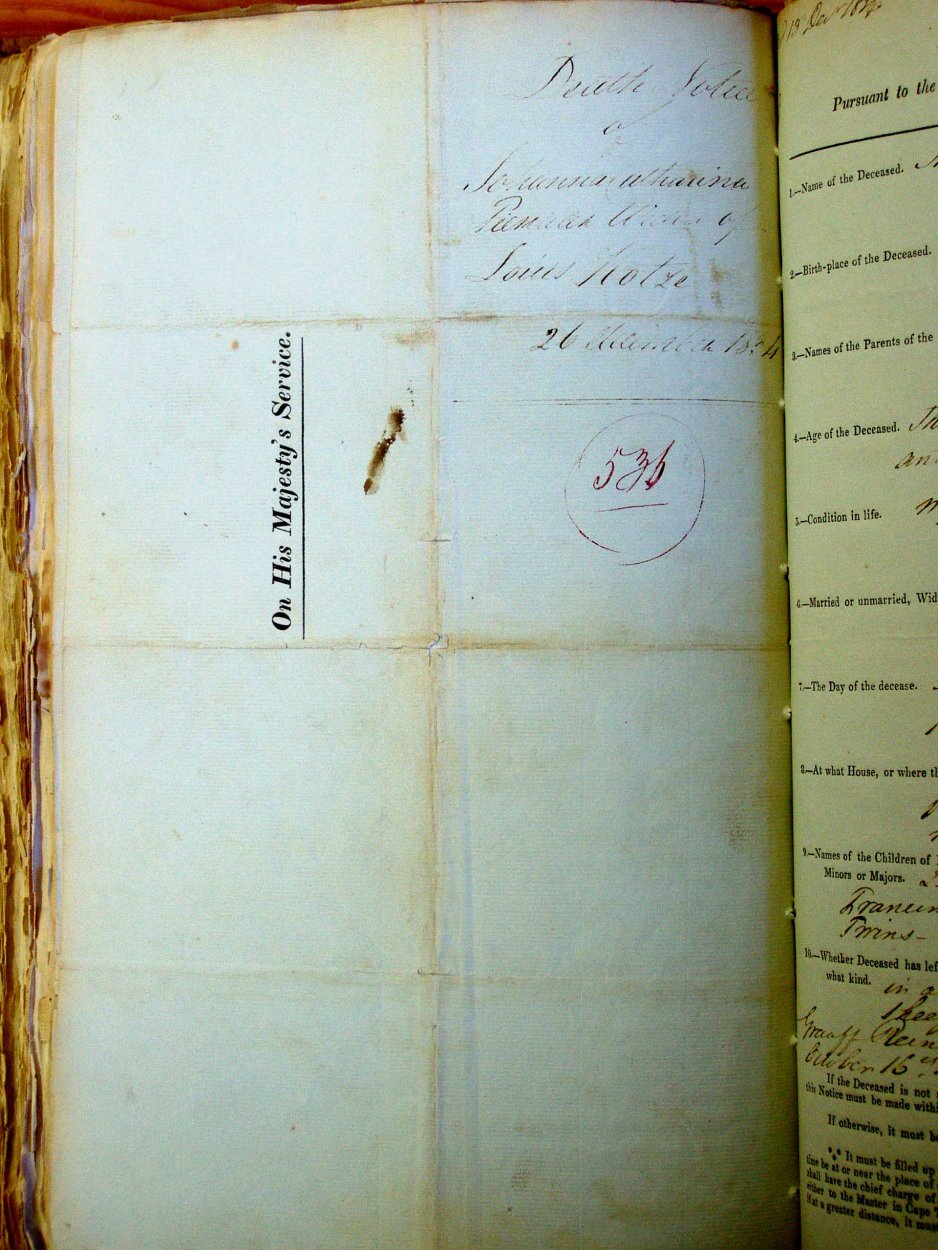 Death Notice
of
Johanna Catharina
Pienaar of
Louis Kotze
26 December
536
On His Majesty's Service.
Pursuant to the
1.—Name of the Deceased.
2.—Birth-place of the Deceased.
3.—Names of the Parents of the
4.—Age of the Deceased.
5.—Condition in life.
6.—Married or unmarried, Wid
7.—The Day of the decease.
8.—At what House, or where th
9.—Names of the Children of
Minors or Majors.
Francin
Twins—
10.—Whether Deceased has lef
what kind. in a
Graaff Rein
October 16
If the Deceased is not
this Notice must be made withi
If otherwise, it must be
It must be filled up
time be at or near the place of
shall have the chief charge of
either to the Master in Cape T
if at a greater distance, it must